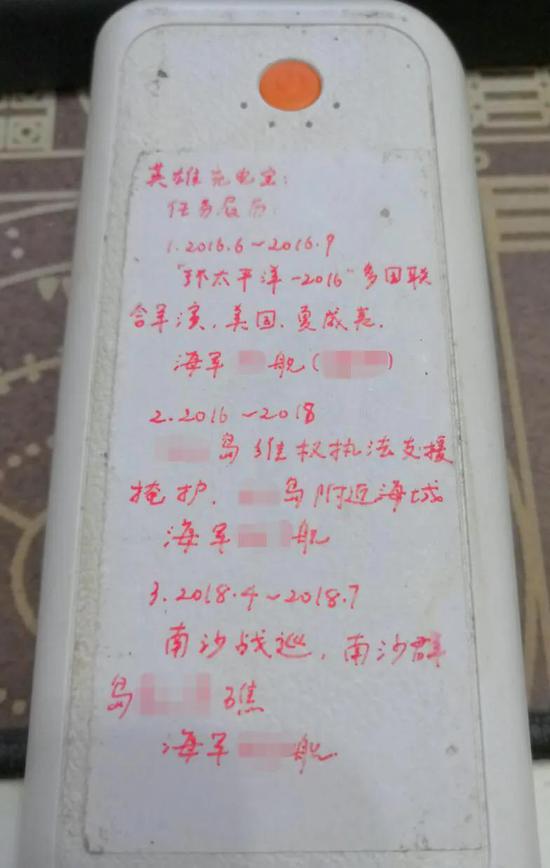 英雄充电宝:
任务履历
1.2016.6~2016.9
"环太平洋-2016"多国联
合军演,美国、夏威夷.
海军 舰( )
2.2016~2018
岛维权执法支援
掩护, 岛附近海域
海军 舰
3.2018.4~2018.7
南沙战巡,南沙群
岛 礁
海军 舰